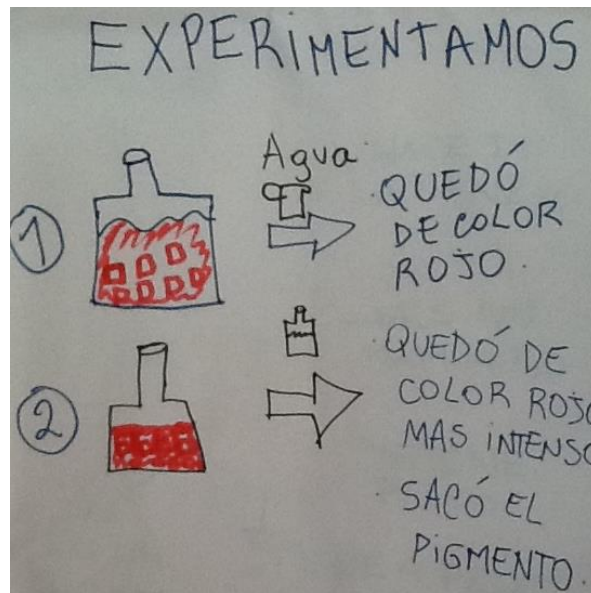 EXPERIMENTAMOS
1
Agua
QUEDÓ
DE COLOR
ROJO.
2
QUEDÓ DE
COLOR ROJO
MAS INTENSO
SACÓ EL
PIGMENTO.